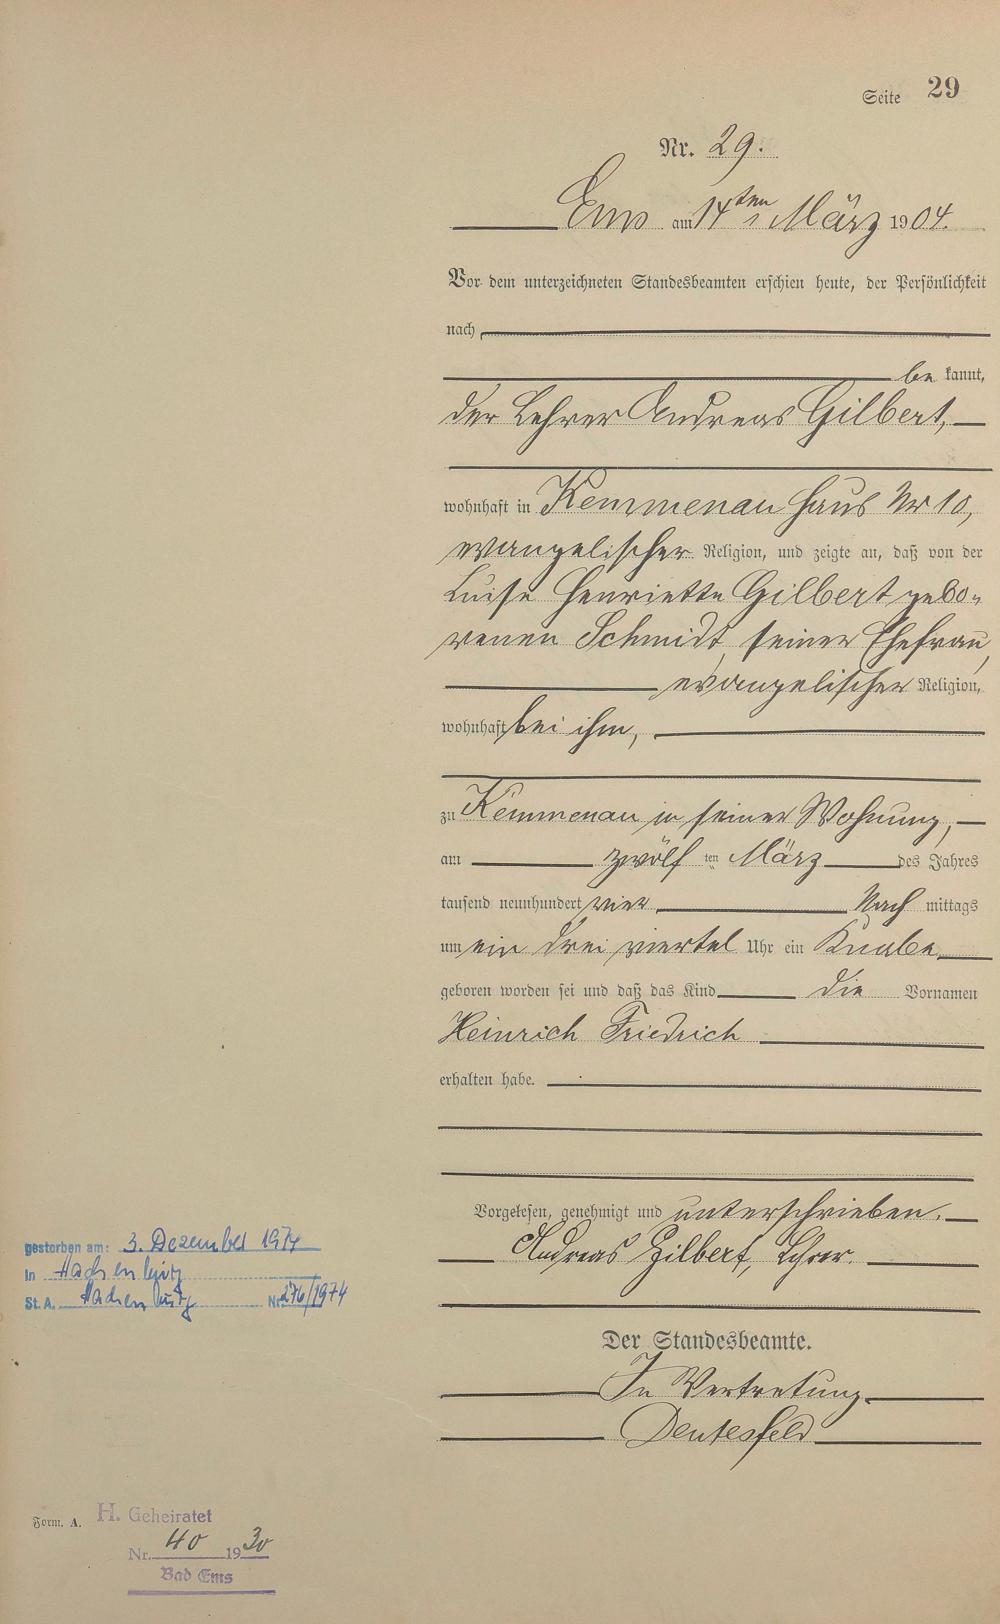 Seite 29
Nr. 29.
Ems am 14ten März 1904.
Vor dem unterzeichneten Standesbeamten erschien heute, der Persönlichkeit
nach
bekannt,
der Lehrer Andreas Gilbert,
wohnhaft in Kemmenau Haus Nr 10,
evangelischer Religion, und zeigte an, daß von der
Luise Henriette Gilbert gebo-
renen Schmidt, seiner Ehefrau,
evangelischer Religion,
wohnhaft bei ihm,
zu Kemmenau in seiner Wohnung,
am zwölf ten März des Jahres
tausend neunhundert vier Nach mittags
um ein drei viertel Uhr ein Knabe
geboren worden sei und daß das Kind die Vornamen
Heinrich Friedrich
erhalten habe.
Vorgelesen, genehmigt und unterschrieben.
Andreas Gilbert, Lehrer.
Der Standesbeamte.
In Vertretung
gestorben am: 3. Dezember 1974
in Hachenburg
St. A. Hachenburg Nr. 276/1974
Form. A.
H. Geheiratet
Nr. 40 1930
Bad Ems